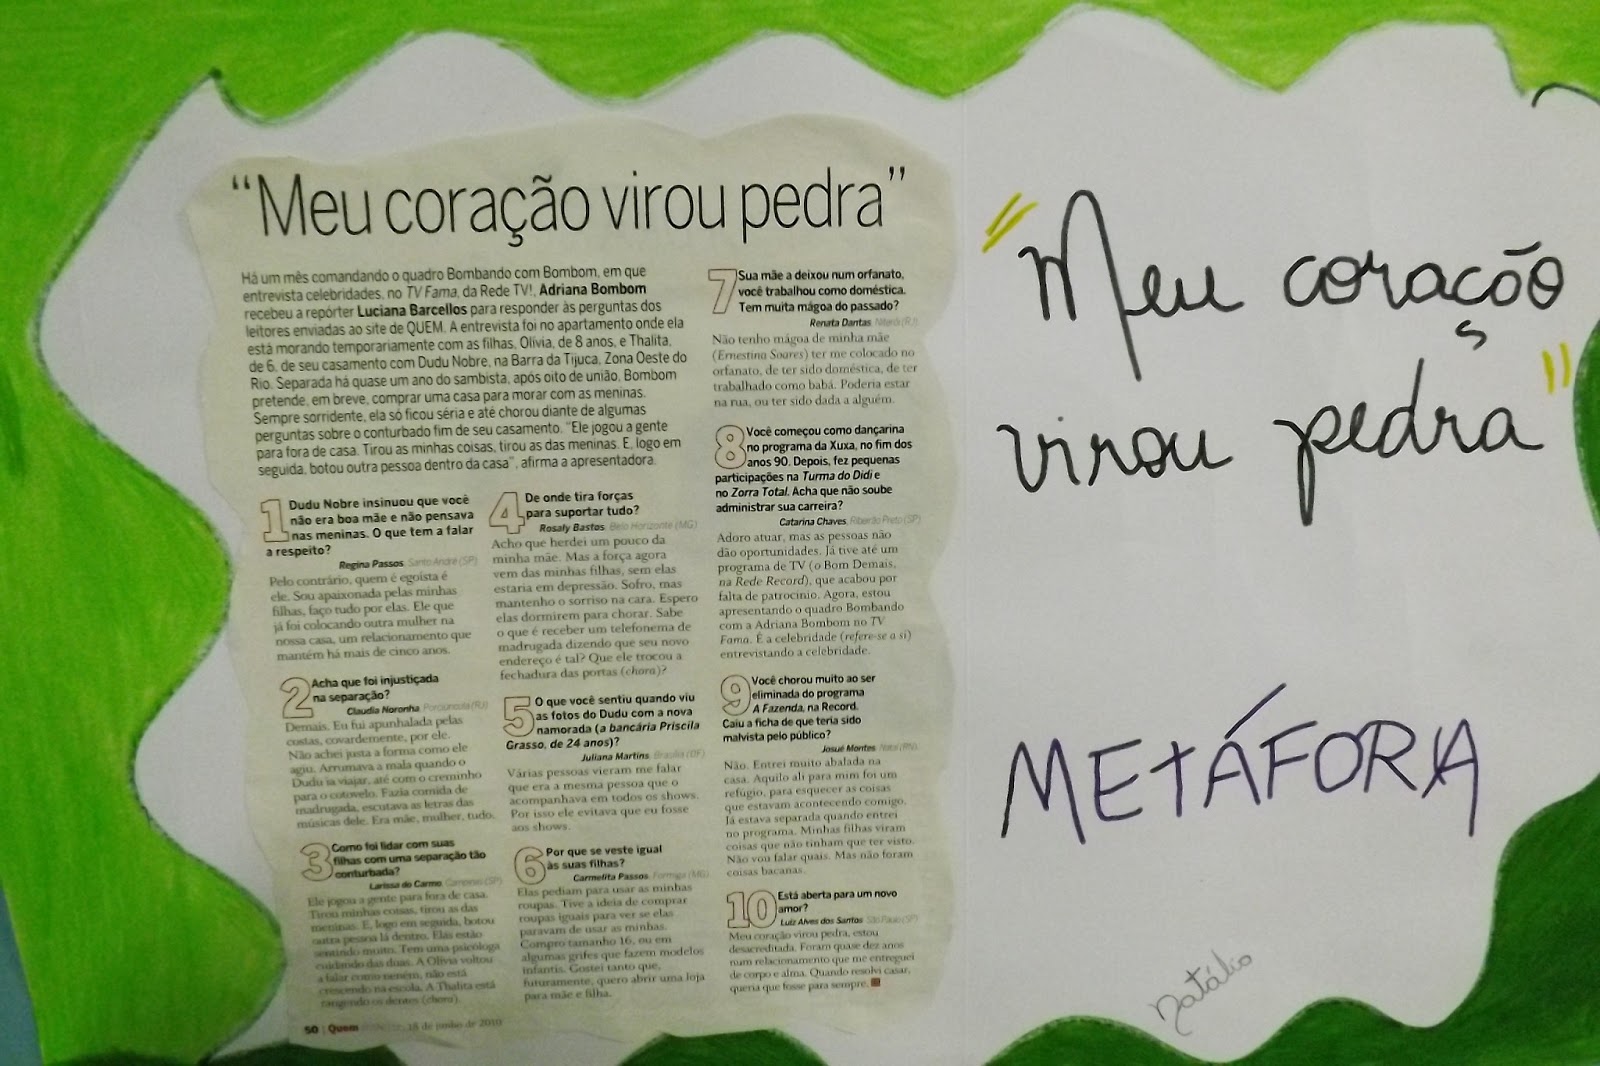 “Meu coração virou pedra”
Há um mês comandando o quadro Bombando com Bombom, em que
entrevista celebridades, no TV Fama, da Rede TV!, Adriana Bombom
recebeu a repórter Luciana Barcellos para responder às perguntas dos
leitores enviadas ao site de QUEM. A entrevista foi no apartamento onde ela
está morando temporariamente com as filhas, Olívia, de 8 anos, e Thalita,
de 6, de seu casamento com Dudu Nobre, na Barra da Tijuca, Zona Oeste do
Rio. Separada há quase um ano do sambista, após oito de união, Bombom
pretende, em breve, comprar uma casa para morar com as meninas.
Sempre sorridente, ela só ficou séria e até chorou diante de algumas
perguntas sobre o conturbado fim de seu casamento. “Ele jogou a gente
para fora de casa. Tirou as minhas coisas, tirou as das meninas. E, logo em
seguida, botou outra pessoa dentro da casa”, afirma a apresentadora.
1 Dudu Nobre insinuou que você
não era boa mãe e não pensava
nas meninas. O que tem a falar
a respeito?
Regina Passos, Santo André (SP)
Pelo contrário, quem é egoísta é
ele. Sou apaixonada pelas minhas
filhas, faço tudo por elas. Ele que
já foi colocando outra mulher na
nossa casa, um relacionamento que
mantém há mais de cinco anos.
2 Acha que foi injustiçada
na separação?
Claudia Noronha, Porciúncula (RJ)
Demais. Eu fui apunhalada pelas
costas, covardemente, por ele.
Não achei justa a forma como ele
agiu. Arrumava a mala quando o
Dudu ia viajar, até com o creminho
para o cotovelo. Fazia comida de
madrugada, escutava as letras das
músicas dele. Era mãe, mulher, tudo.
3 Como foi lidar com suas
filhas com uma separação tão
conturbada?
Larissa do Carmo, Campinas (SP)
Ele jogou a gente para fora de casa.
Tirou minhas coisas, tirou as das
meninas. E, logo em seguida, botou
outra pessoa lá dentro. Elas estão
sentindo muito. Tem uma psicóloga
cuidando das duas. A Olívia voltou
a falar como neném, não está
crescendo na escola. A Thalita está
rangendo os dentes (chora).
4 De onde tira forças
para suportar tudo?
Rosaly Bastos, Belo Horizonte (MG)
Acho que herdei um pouco da
minha mãe. Mas a força agora
vem das minhas filhas, sem elas
estaria em depressão. Sofro, mas
mantenho o sorriso na cara. Espero
elas dormirem para chorar. Sabe
o que é receber um telefonema de
madrugada dizendo que seu novo
endereço é tal? Que ele trocou a
fechadura das portas (chora)?
5 O que você sentiu quando viu
as fotos do Dudu com a nova
namorada (a bancária Priscila
Grasso, de 24 anos)?
Juliana Martins, Brasília (DF)
Várias pessoas vieram me falar
que era a mesma pessoa que o
acompanhava em todos os shows.
Por isso ele evitava que eu fosse
aos shows.
6 Por que se veste igual
às suas filhas?
Carmelita Passos, Formiga (MG)
Elas pediam para usar as minhas
roupas. Tive a ideia de comprar
roupas iguais para ver se elas
paravam de usar as minhas.
Compro tamanho 16, ou em
algumas grifes que fazem modelos
infantis. Gostei tanto que,
futuramente, quero abrir uma loja
para mãe e filha.
7 Sua mãe a deixou num orfanato,
você trabalhou como doméstica.
Tem muita mágoa do passado?
Renata Dantas, Niterói (RJ)
Não tenho mágoa de minha mãe
(Ernestina Soares) ter me colocado no
orfanato, de ter sido doméstica, de ter
trabalhado como babá. Poderia estar
na rua, ou ter sido dada a alguém.
8 Você começou como dançarina
no programa da Xuxa, no fim dos
anos 90. Depois, fez pequenas
participações na Turma do Didi e
no Zorra Total. Acha que não soube
administrar sua carreira?
Catarina Chaves, Ribeirão Preto (SP)
Adoro atuar, mas as pessoas não
dão oportunidades. Já tive até um
programa de TV (o Bom Demais,
na Rede Record), que acabou por
falta de patrocínio. Agora, estou
apresentando o quadro Bombando
com a Adriana Bombom no TV
Fama. É a celebridade (refere-se a si)
entrevistando a celebridade.
9 Você chorou muito ao ser
eliminada do programa
A Fazenda, na Record.
Caiu a ficha de que teria sido
malvista pelo público?
Josué Montes, Natal (RN)
Não. Entrei muito abalada na
casa. Aquilo ali para mim foi um
refúgio, para esquecer as coisas
que estavam acontecendo comigo.
Já estava separada quando entrei
no programa. Minhas filhas viram
coisas que não tinham que ter visto.
Não vou falar quais. Mas não foram
coisas bacanas.
10 Está aberta para um novo
amor?
Luiz Alves dos Santos, São Paulo (SP)
Meu coração virou pedra, estou
desacreditada. Foram quase dez anos
num relacionamento que me entreguei
de corpo e alma. Quando resolvi casar,
queria que fosse para sempre.
50 | Quem 18 de junho de 2010
"Meu coração
virou pedra"
METÁFORA
Natálio